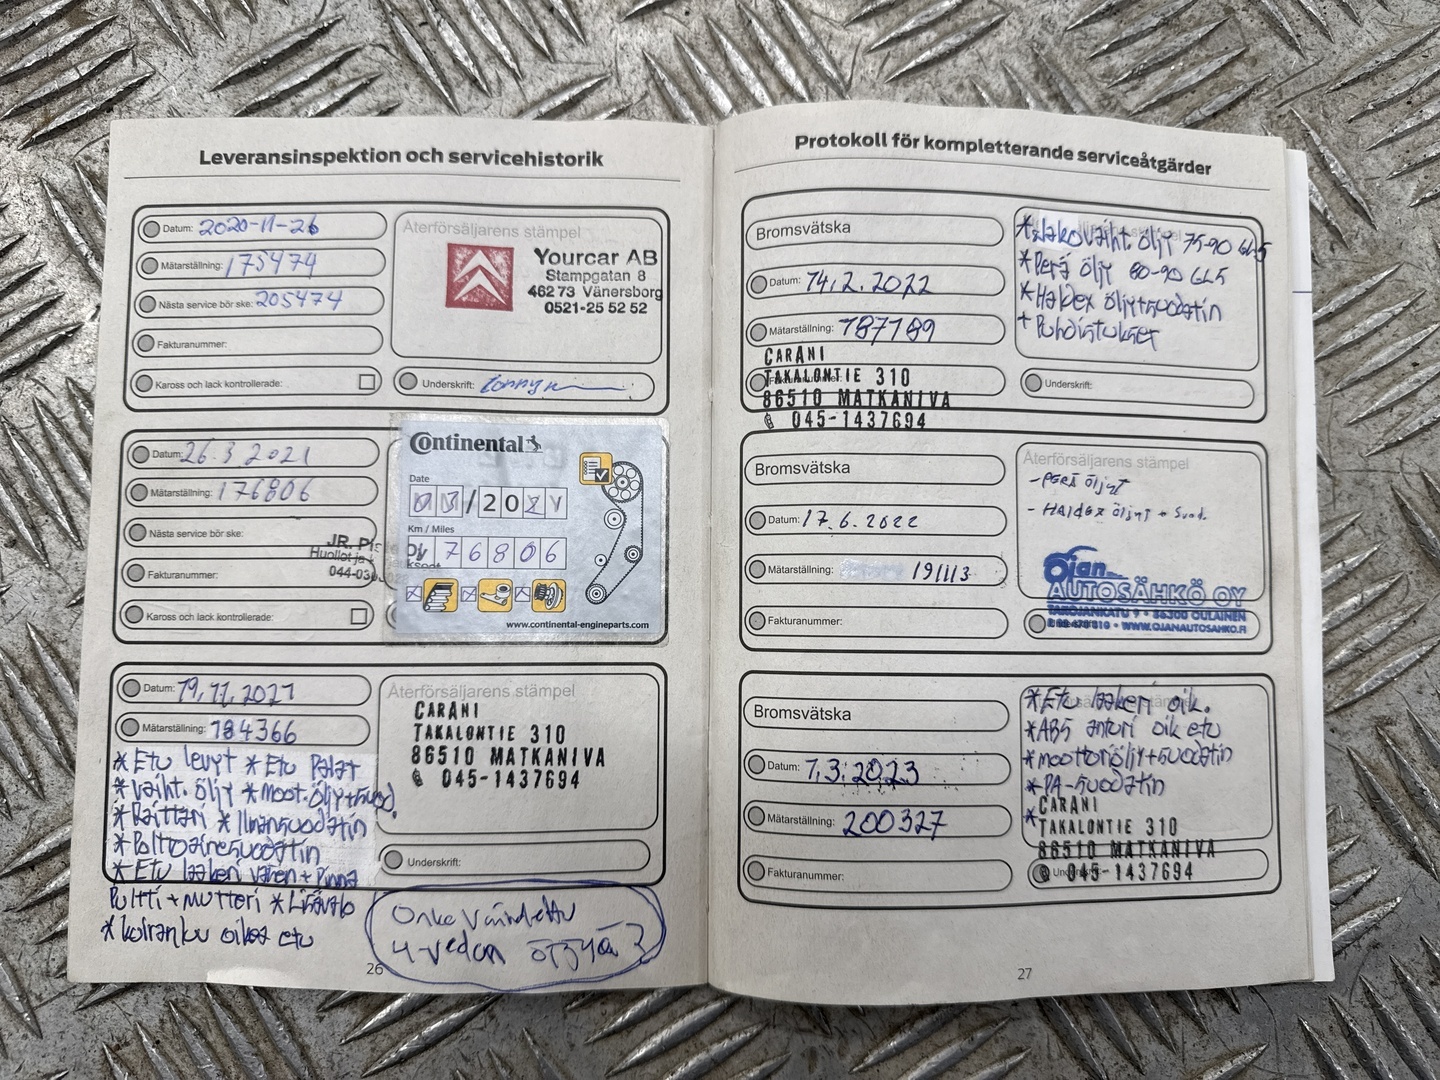 Leveransinspektion och servicehistorik
Datum: 2020-11-26
Mätarställning: 175474
Nästa service bör ske: 205474
Fakturanummer:
Kaross och lack kontrollerade:
Återförsäljarens stämpel
Yourcar AB
Stampgatan 8
462 73 Vänersborg
0521-25 52 52
Underskrift:
Datum: 26.3 2021
Mätarställning: 176806
Nästa service bör ske:
Fakturanummer:
Kaross och lack kontrollerade:
JR.
Huollot ja
044-03
Continental
Date
03/20
Km / Miles
76806
www.continental-engineparts.com
Datum: 19.11.2021
Mätarställning: 184366
* Etu levyt * Etu Palat
* vaiht. öljy * moot.öljy+suod.
* Raittari * Ilmansuodatin
* Polttoainesuodatin
* Etu laakeri vasen + Pinna
Pultti + mutteri * Lisävalo
* koiranluu oikea etu
Återförsäljarens stämpel
CARANI
TAKALONTIE 310
86510 MATKANIVA
045-1437694
Underskrift:
Onko vaihdettu
4-vedon öljyä?
26
Protokoll för kompletterande serviceåtgärder
Bromsvätska
Datum: 14.2.2022
Mätarställning: 187189
CARANI
TAKALONTIE 310
86510 MATKANIVA
045-1437694
* Jakovaiht. öljy 75-90 GL5
* Perä öljy 80-90 GL5
* Haldex öljy+suodatin
+ Puhdistukset
Underskrift:
Bromsvätska
Datum: 17.6.2022
Mätarställning: 191113
Fakturanummer:
Återförsäljarens stämpel
- PERÄ öljyt
- HALDEX öljyt + Suod.
Ojan
AUTOSÄHKÖ OY
TAKOJANKATU 9 • 86300 OULAINEN
• WWW.OJANAUTOSAHKO.FI
Bromsvätska
Datum: 1.3.2023
Mätarställning: 200327
Fakturanummer:
* Etu laakeri oik.
* ABS anturi oik etu
* moottoriöljy+suodatin
* PA-suodatin
*
CARANI
TAKALONTIE 310
86510 MATKANIVA
045-1437694
27